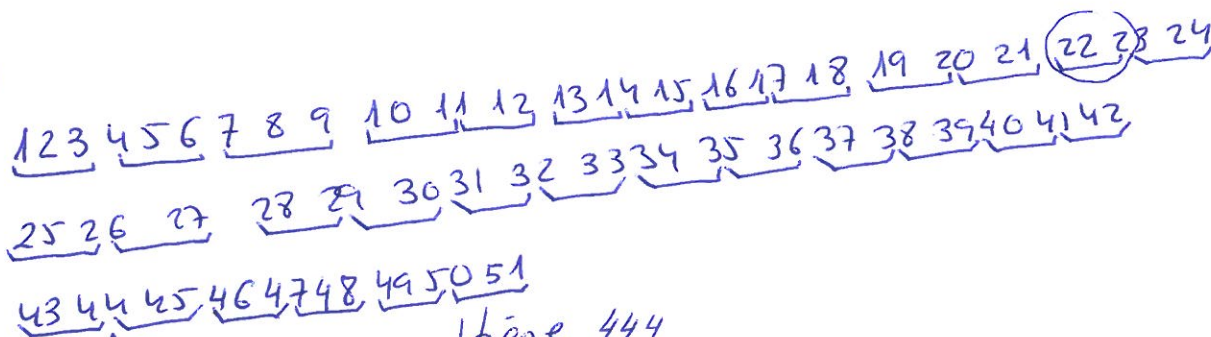 123 456 7 8 9 10 11 12 13 14 15 16 17 18 19 20 21 22 23 24
25 26 27 28 29 30 31 32 33 34 35 36 37 38 39 40 41 42
43 44 45 46 47 48 49 50 51
444